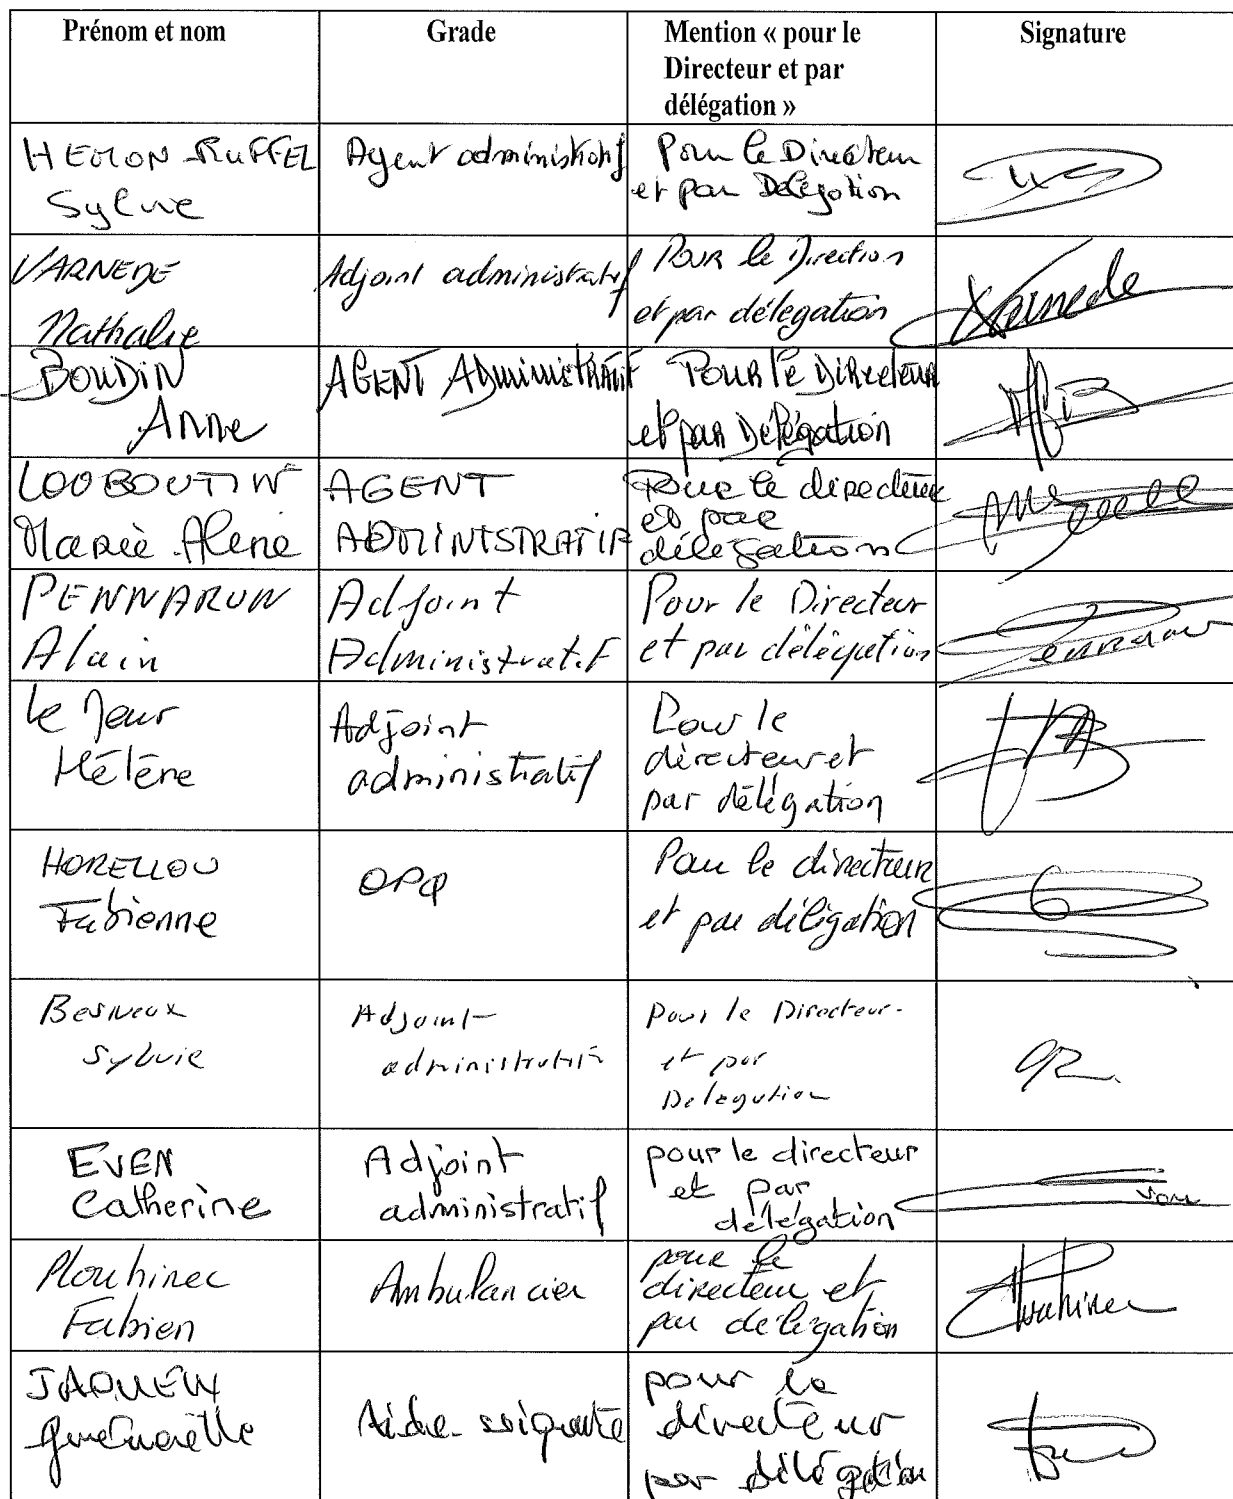 Prénom et nom
Grade
Mention « pour le
Directeur et par
délégation »
Signature
HEMON-RUFFEL
Sylvie
Agent administratif
Pour le Directeur
et par Délégation
VARNEDE
Nathalie
Adjoint administratif
Pour le Direction
et par délégation
Varnede
BOUDIN
Anne
AGENT Administratif
Pour le Directeur
et par Délégation
LOUBOUTIN
Marie
AGENT
ADMINISTRATIF
Pour le directeur
et par
délégation
PENNARUN
Alain
Adjoint
Administratif
Pour le Directeur
et par délégation
Pennarun
Le
Hélène
Adjoint
administratif
Pour le
directeur et
par délégation
HORELLOU
Fabienne
OPQ
Pour le directeur
et par déligation
Besneux
Sylvie
Adjoint
administratif
Pour le Directeur.
et par
Delegation
EVEN
Catherine
Adjoint
administratif
pour le directeur
et par
délégation
Plouhinec
Fabien
Ambulancier
pour le
directeur et
par déligation
Plouhinec
Aide-soignante
pour le
directeur
par délégation